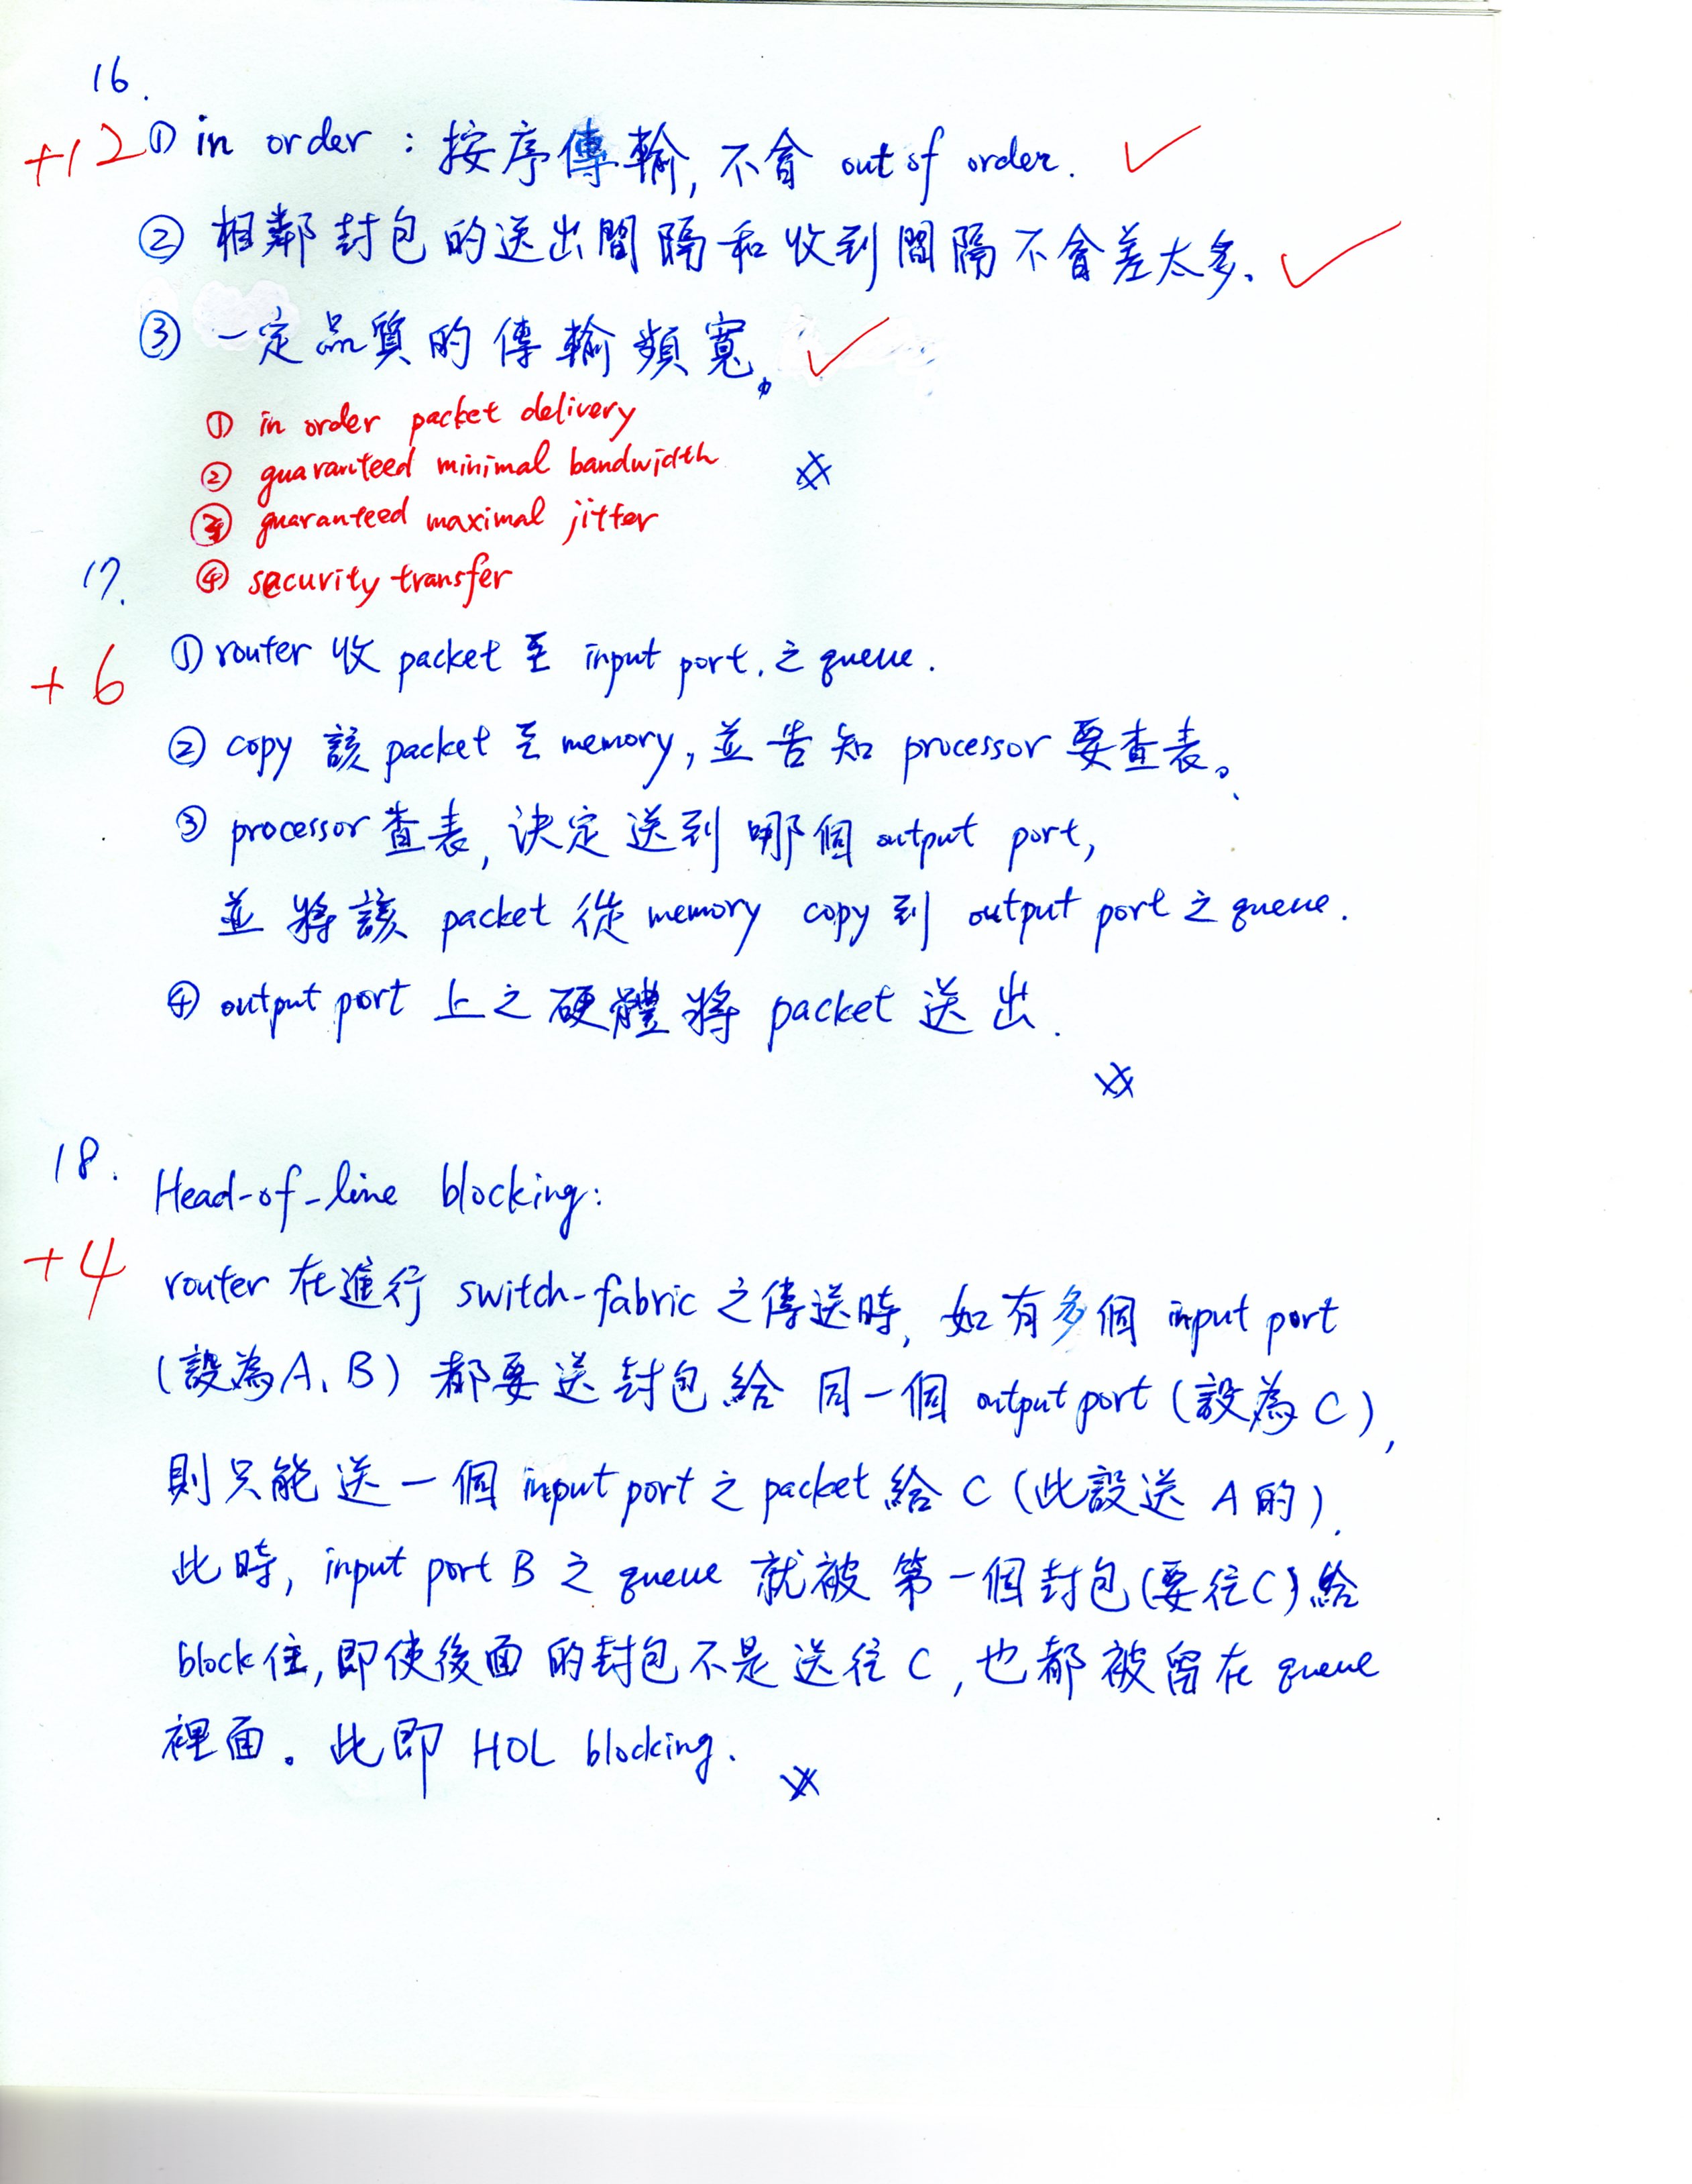 16.
+12 ① in order : 按序傳輸, 不會 out of order. ✓
② 相鄰封包的送出間隔和收到間隔不會差太多. ✓
③ 一定品質的傳輸頻寬. ✓
① in order packet delivery
② guaranteed minimal bandwidth
③ guaranteed maximal jitter
④ security transfer
17.
+6 ① router 收 packet 至 input port. 之 queue.
② copy 該 packet 至 memory, 並告知 processor 要查表。
③ processor 查表, 決定送到哪個 output port,
並將該 packet 從 memory copy 到 output port 之 queue.
④ output port 上之硬體將 packet 送出.
18. Head-of-line blocking:
+4 router 在進行 switch-fabric 之傳送時, 如有多個 input port
(設為A、B) 都要送封包給同一個 output port (設為 C),
則只能送一個 input port 之 packet 給 C (此設送 A 的).
此時, input port B 之 queue 就被第一個封包(要往C)給
block住, 即使後面的封包不是送往 C, 也都被留在 queue
裡面。此即 HOL blocking.